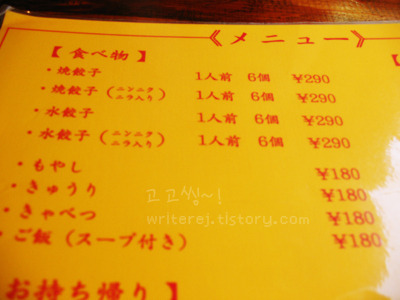 《メニュー》
【食べ物】
・焼餃子 1人前 6個 ¥290
・焼餃子（ニンニク ニラ入り） 1人前 6個 ¥290
・水餃子 1人前 6個 ¥290
・水餃子（ニンニク ニラ入り） 1人前 6個 ¥290
・もやし ¥180
・きゅうり ¥180
・きゃべつ ¥180
・ご飯（スープ付き） ¥180
お持ち帰り】
고고씽~!
writerej.tistory.com